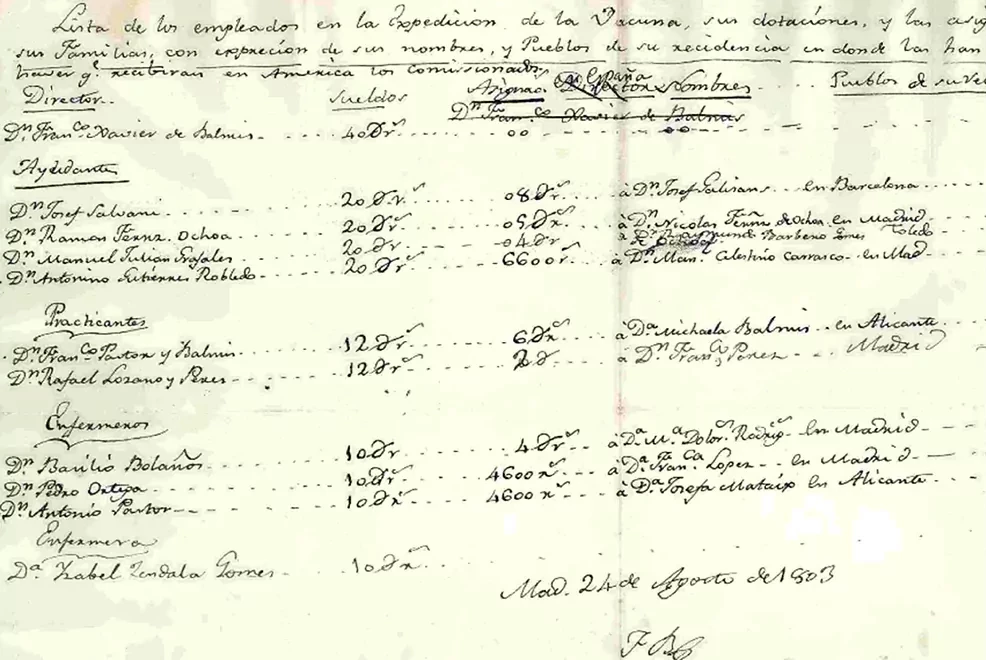 Lista de los empleados en la Expedicion de la Vacuna, sus dotaciones, y las asig
sus Familias, con exprecion de sus nombres, y Pueblos de su recidencia en donde las han
haver qe. recibiran en America los comissionados.
Director. Sueldos Asignac. en España Nombres Pueblos de su re
Dn. Franco. Xavier de Balmis
Dn. Franco. Xavier de Balmis .... 40 Dr. .... 00 .... 00
Ayudantes
Dn. Josef Salvani .... 20 Dr. .... 08 Dr. .... à Dn. Josef Salvans .. en Barcelona
Dn. Ramon Fernz. Ochoa .... 20 Dr. .... 05 Dr. .... à Dn. Nicolas Fernz. de Ochoa en Madrid
Dn. Manuel Julian Grajales .... 20 Dr. .... 04 Dr. .... à Dn. Raymundo Barbeno Gomes Toledo
Dn. Antonino Gutierres Robledo .... 20 Dr. .... 6600 r. .... à Dn. Man. Celestino Carrasco - en Mad.
Practicantes
Dn. Franco. Pastor y Balmis .... 12 Dr. .... 6 Dr. .... à Da. Michaela Balmis .. en Alicante
Dn. Rafael Lozano y Peres .... 12 Dr. .... à Dn. Franco. Perez .. Madrid
Enfermeros
Dn. Basilio Bolaños .... 10 Dr. .... 4 Dr. .... à Da. Ma. Dolors. Rodrigz. en Madrid
Dn. Pedro Ortega .... 10 Dr. .... 4600 r. .... à Da. Franca. Lopez .. en Madrid
Dn. Antonio Pastor .... 10 Dr. .... 4600 r. .... à Da. Josefa Mataix en Alicante
Enfermera
Da. Ysabel Zendala Gomes .... 10 Dr.
Mad. 24 de Agosto de 1803
F B